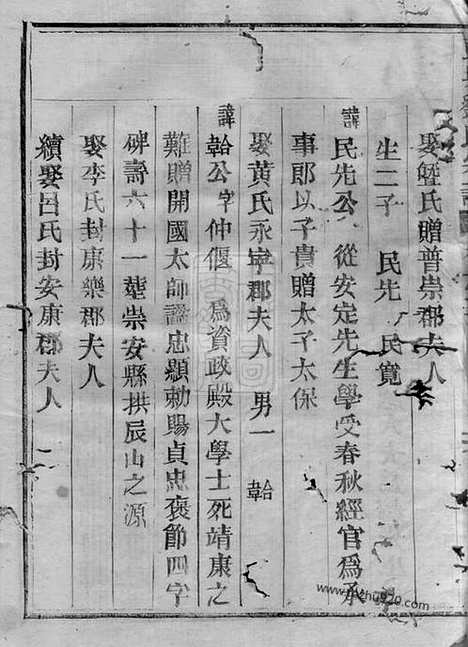 娶暨氏贈普崇郡夫人
生二子 民先 民寬
諱民先公 從安定先生學受春秋經官爲承
事郎以子貴贈太子太保
娶黃氏永寧郡夫人 男一 韐
諱韐公字仲偃 爲資政殿大學士死靖康之
難贈開國太師諡忠顯勅賜貞忠褒節四字
碑壽六十一塟崇安縣拱辰山之源
娶李氏封康樂郡夫人
續娶呂氏封安康郡夫人
www.zhu920.com